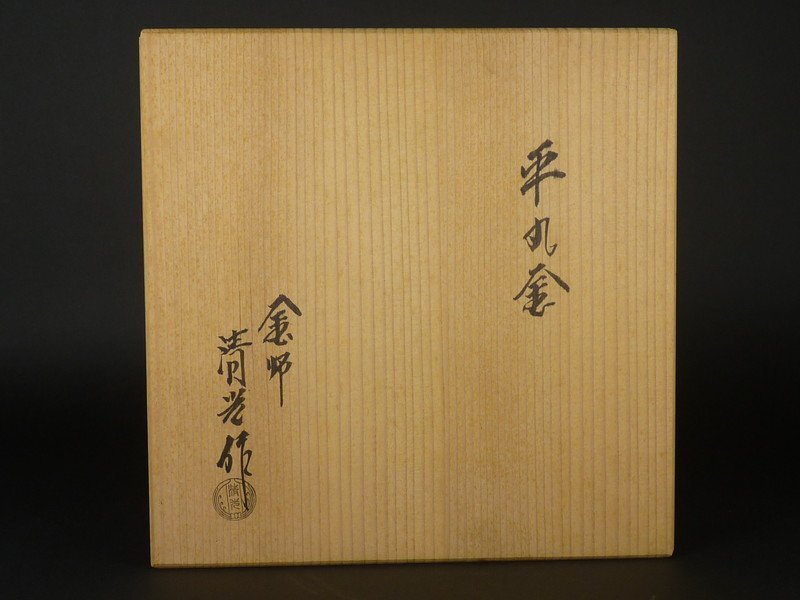 平丸釜
釜師
清光作